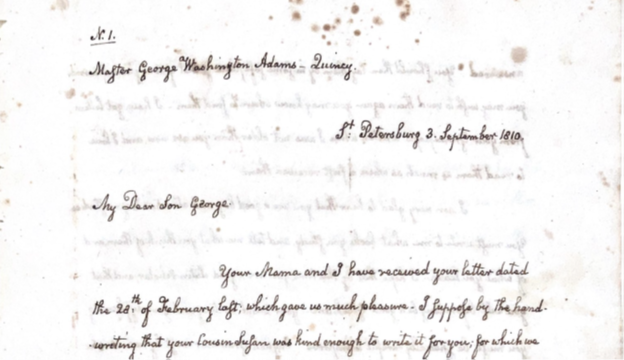 N. 1.
Master George Washington Adams - Quincy.
St. Petersburg 3. September 1810.
My Dear Son George.
Your Mama and I have received your letter dated
the 28th. of February last, which gave us much pleasure. I suppose by the hand-
writing that your Cousin Susan was kind enough to write it for you, for which we